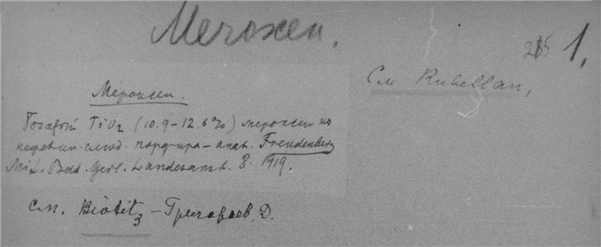 Мероксен.
215 1,
См Rubellan,
Мероксен.
Богатый TiO2 (10.9-12.6%) мероксен из
слюд. Freudenberg
Mit. Bad. Geol. Landesamt. 8. 1919.
см. Biotit3 - Григорьев, Д.